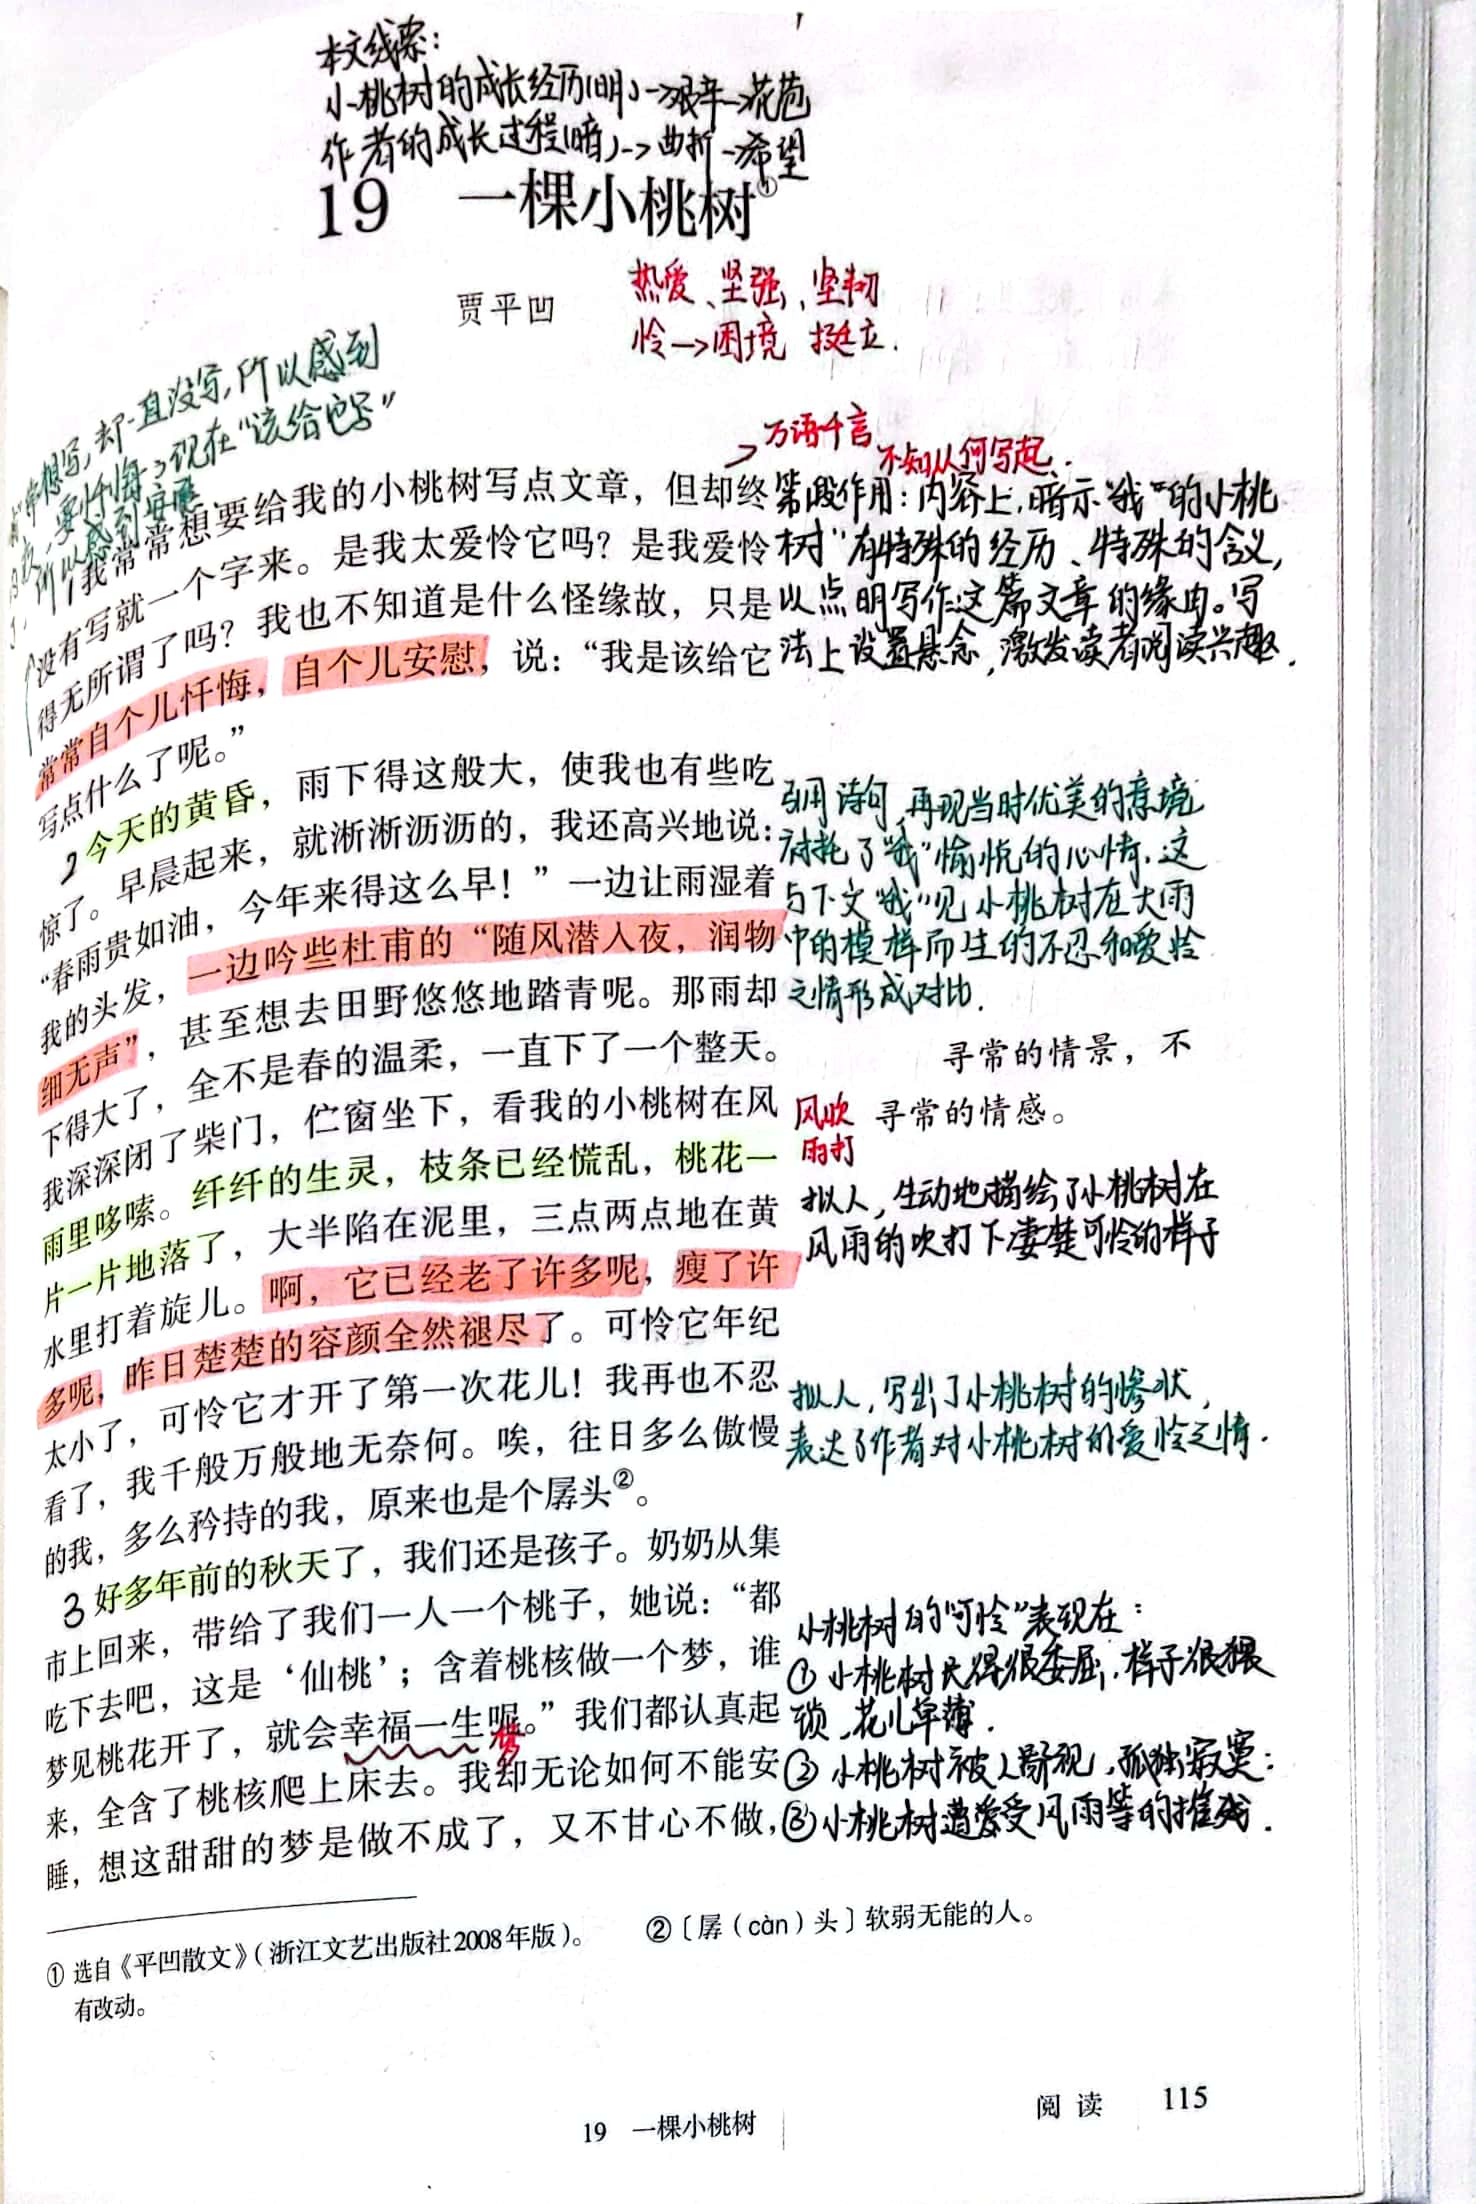 本文线索：
小桃树的成长经历(明)->艰辛->花苞
作者的成长过程(暗)->曲折->希望
19 一棵小桃树①
贾平凹
热爱、坚强、坚韧
怜→困境 挺立.
想写,却一直没写,所以感到
忏悔→现在“该给它写”
所以感到安慰
→万语千言
不知从何写起.
1我常常想要给我的小桃树写点文章，但却终
没有写就一个字来。是我太爱怜它吗？是我爱怜
得无所谓了吗？我也不知道是什么怪缘故，只是
常常自个儿忏悔，自个儿安慰，说：“我是该给它
写点什么了呢。”
段作用：内容上,暗示“我”的小桃
树”有特殊的经历、特殊的含义,
以点明写作这篇文章的缘由。写
法上设置悬念,激发读者阅读兴趣.
2今天的黄昏，雨下得这般大，使我也有些吃
惊了。早晨起来，就淅淅沥沥的，我还高兴地说：
“春雨贵如油，今年来得这么早！”一边让雨湿着
我的头发，一边吟些杜甫的“随风潜入夜，润物
细无声”，甚至想去田野悠悠地踏青呢。那雨却
下得大了，全不是春的温柔，一直下了一个整天。
我深深闭了柴门，伫窗坐下，看我的小桃树在风
雨里哆嗦。纤纤的生灵，枝条已经慌乱，桃花一
片一片地落了，大半陷在泥里，三点两点地在黄
水里打着旋儿。啊，它已经老了许多呢，瘦了许
多呢，昨日楚楚的容颜全然褪尽了。可怜它年纪
太小了，可怜它才开了第一次花儿！我再也不忍
看了，我千般万般地无奈何。唉，往日多么傲慢
的我，多么矜持的我，原来也是个孱头②。
引用诗句,再现当时优美的意境
衬托了“我”愉悦的心情,这
与下文“我”见小桃树在大雨
中的模样而生的不忍和爱怜
之情形成对比.
寻常的情景，不
寻常的情感。
风吹
雨打
拟人,生动地描绘了小桃树在
风雨的吹打下凄楚可怜的样子
拟人,写出了小桃树的惨状,
表达了作者对小桃树的爱怜之情.
3好多年前的秋天了，我们还是孩子。奶奶从集
市上回来，带给了我们一人一个桃子，她说：“都
吃下去吧，这是‘仙桃’；含着桃核做一个梦，谁
梦见桃花开了，就会幸福一生呢。”我们都认真起
来，全含了桃核爬上床去。我却无论如何不能安
睡，想这甜甜的梦是做不成了，又不甘心不做，
梦
小桃树的“可怜”表现在：
①小桃树长得很委屈,样子很猥
琐,花儿单薄.
②小桃树被人鄙视,孤独寂寞；
③小桃树遭受风雨等的摧残.
① 选自《平凹散文》（浙江文艺出版社2008年版）。
有改动。
②〔孱（càn）头〕软弱无能的人。
阅读 115
19 一棵小桃树